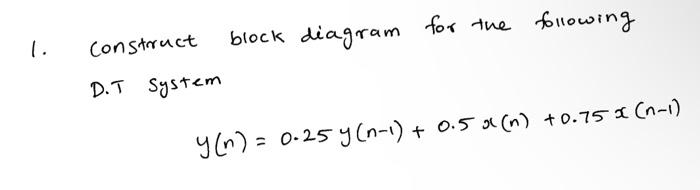 1. Construct block diagram for the following
D.T System
y(n) = 0.25 y(n-1) + 0.5 x(n) + 0.75 x(n-1)